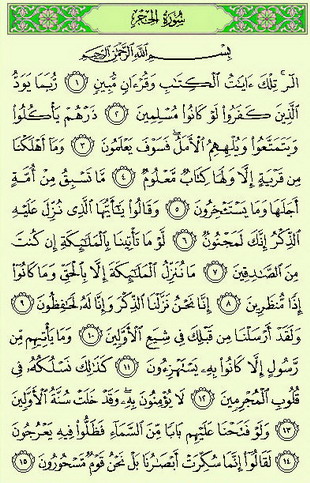 سُورَةُ الحِجْرِ
بِسْمِ اللَّهِ الرَّحْمَٰنِ الرَّحِيمِ
الٓر تِلْكَ ءَايَٰتُ ٱلْكِتَٰبِ وَقُرْءَانٍ مُّبِينٍ ١ رُّبَمَا يَوَدُّ
ٱلَّذِينَ كَفَرُوا۟ لَوْ كَانُوا۟ مُسْلِمِينَ ٢ ذَرْهُمْ يَأْكُلُوا۟
وَيَتَمَتَّعُوا۟ وَيُلْهِهِمُ ٱلْأَمَلُ ۖ فَسَوْفَ يَعْلَمُونَ ٣ وَمَآ أَهْلَكْنَا
مِن قَرْيَةٍ إِلَّا وَلَهَا كِتَابٌ مَّعْلُومٌ ٤ مَّا تَسْبِقُ مِنْ أُمَّةٍ
أَجَلَهَا وَمَا يَسْتَـْٔخِرُونَ ٥ وَقَالُوا۟ يَٰٓأَيُّهَا ٱلَّذِى نُزِّلَ عَلَيْهِ
ٱلذِّكْرُ إِنَّكَ لَمَجْنُونٌ ٦ لَّوْ مَا تَأْتِينَا بِٱلْمَلَٰٓئِكَةِ إِن كُنتَ
مِنَ ٱلصَّٰدِقِينَ ٧ مَا نُنَزِّلُ ٱلْمَلَٰٓئِكَةَ إِلَّا بِٱلْحَقِّ وَمَا كَانُوٓا۟
إِذًا مُّنظَرِينَ ٨ إِنَّا نَحْنُ نَزَّلْنَا ٱلذِّكْرَ وَإِنَّا لَهُۥ لَحَٰفِظُونَ ٩
وَلَقَدْ أَرْسَلْنَا مِن قَبْلِكَ فِى شِيَعِ ٱلْأَوَّلِينَ ١٠ وَمَا يَأْتِيهِم مِّن
رَّسُولٍ إِلَّا كَانُوا۟ بِهِۦ يَسْتَهْزِءُونَ ١١ كَذَٰلِكَ نَسْلُكُهُۥ فِى
قُلُوبِ ٱلْمُجْرِمِينَ ١٢ لَا يُؤْمِنُونَ بِهِۦ ۖ وَقَدْ خَلَتْ سُنَّةُ ٱلْأَوَّلِينَ
١٣ وَلَوْ فَتَحْنَا عَلَيْهِم بَابًا مِّنَ ٱلسَّمَآءِ فَظَلُّوا۟ فِيهِ يَعْرُجُونَ
١٤ لَقَالُوٓا۟ إِنَّمَا سُكِّرَتْ أَبْصَٰرُنَا بَلْ نَحْنُ قَوْمٌ مَّسْحُورُونَ ١٥